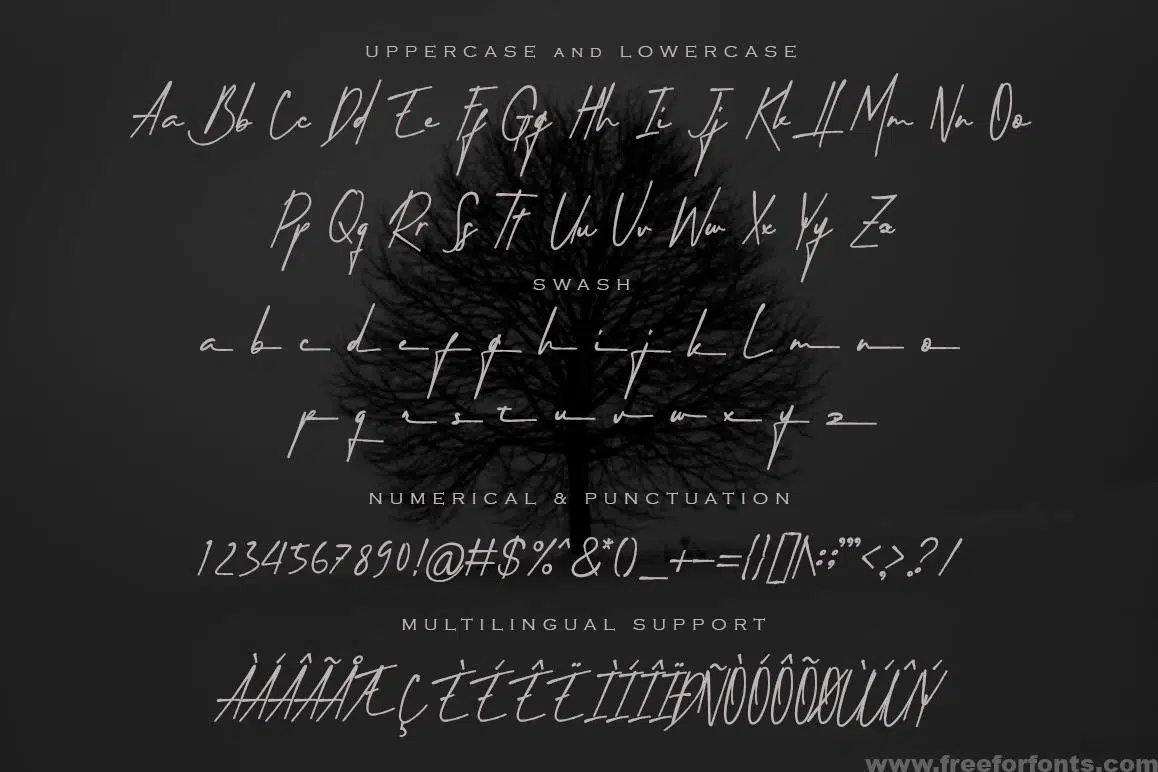 UPPERCASE AND LOWERCASE
Aa Bb Cc Dd Ee Ff Gg Hh Ii Jj Kk Ll Mm Nn Oo
Pp Qq Rr Ss Tt Uu Vv Ww Xx Yy Zz
SWASH
a b c d e f g h i j k l m n o
p q r s t u v w x y z
NUMERICAL & PUNCTUATION
1234567890!@#$%^&*()_+-={}[]|\:;"'<,>.?/
MULTILINGUAL SUPPORT
ÀÁÂÃÅÆÇÈÉÊËÌÍÎÏÐÑÒÓÔÕØÙÚÛÝ
www.freeforfonts.com